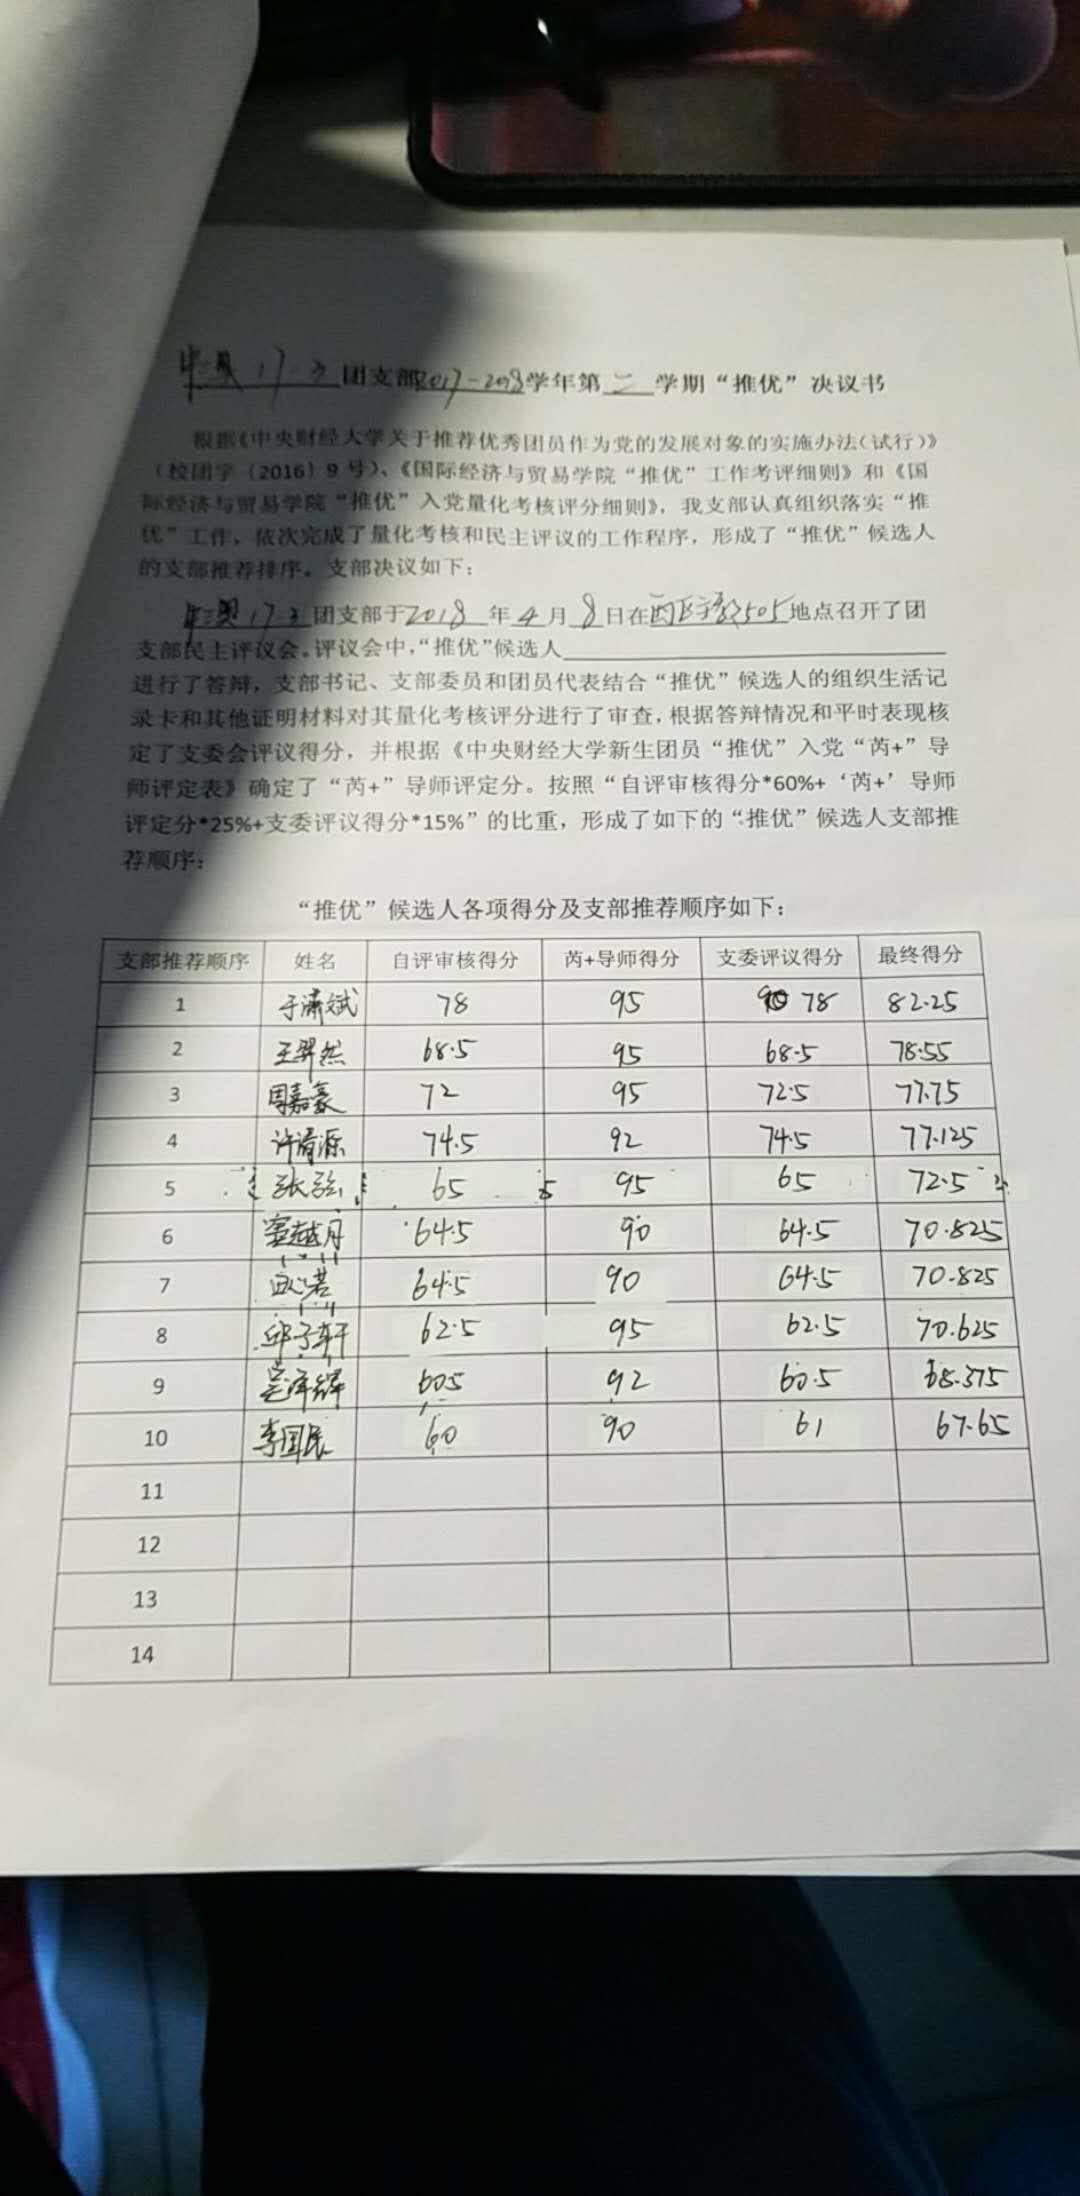 17-3团支部2017-2018学年第二学期“推优”决议书
根据《中央财经大学关于推荐优秀团员作为党的发展对象的实施办法(试行)》
(校团字〔2016〕9号)、《国际经济与贸易学院“推优”工作考评细则》和《国
际经济与贸易学院“推优”入党量化考核评分细则》，我支部认真组织落实“推
优”工作，依次完成了量化考核和民主评议的工作程序，形成了“推优”候选人
的支部推荐排序。支部决议如下：
17-3团支部于2018年4月8日在505地点召开了团
支部民主评议会。评议会中，“推优”候选人
进行了答辩，支部书记、支部委员和团员代表结合“推优”候选人的组织生活记
录卡和其他证明材料对其量化考核评分进行了审查，根据答辩情况和平时表现核
定了支委会评议得分，并根据《中央财经大学新生团员“推优”入党“芮+”导
师评定表》确定了“芮+”导师评定分。按照“自评审核得分*60%+‘芮+’导师
评定分*25%+支委评议得分*15%”的比重，形成了如下的“推优”候选人支部推
荐顺序：
“推优”候选人各项得分及支部推荐顺序如下：
支部推荐顺序 姓名 自评审核得分 芮+导师得分 支委评议得分 最终得分
1 于潇斌 78 95 78 82.25
2 王羿然 68.5 95 68.5 78.55
3 周嘉豪 72 95 72.5 77.75
4 许清源 74.5 92 74.5 77.125
5 65 95 65 72.5
6 64.5 90 64.5 70.825
7 64.5 90 64.5 70.825
8 邱子轩 62.5 95 62.5 70.625
9 吴泽辉 60.5 92 60.5 68.375
10 李国民 60 90 61 67.65
11
12
13
14